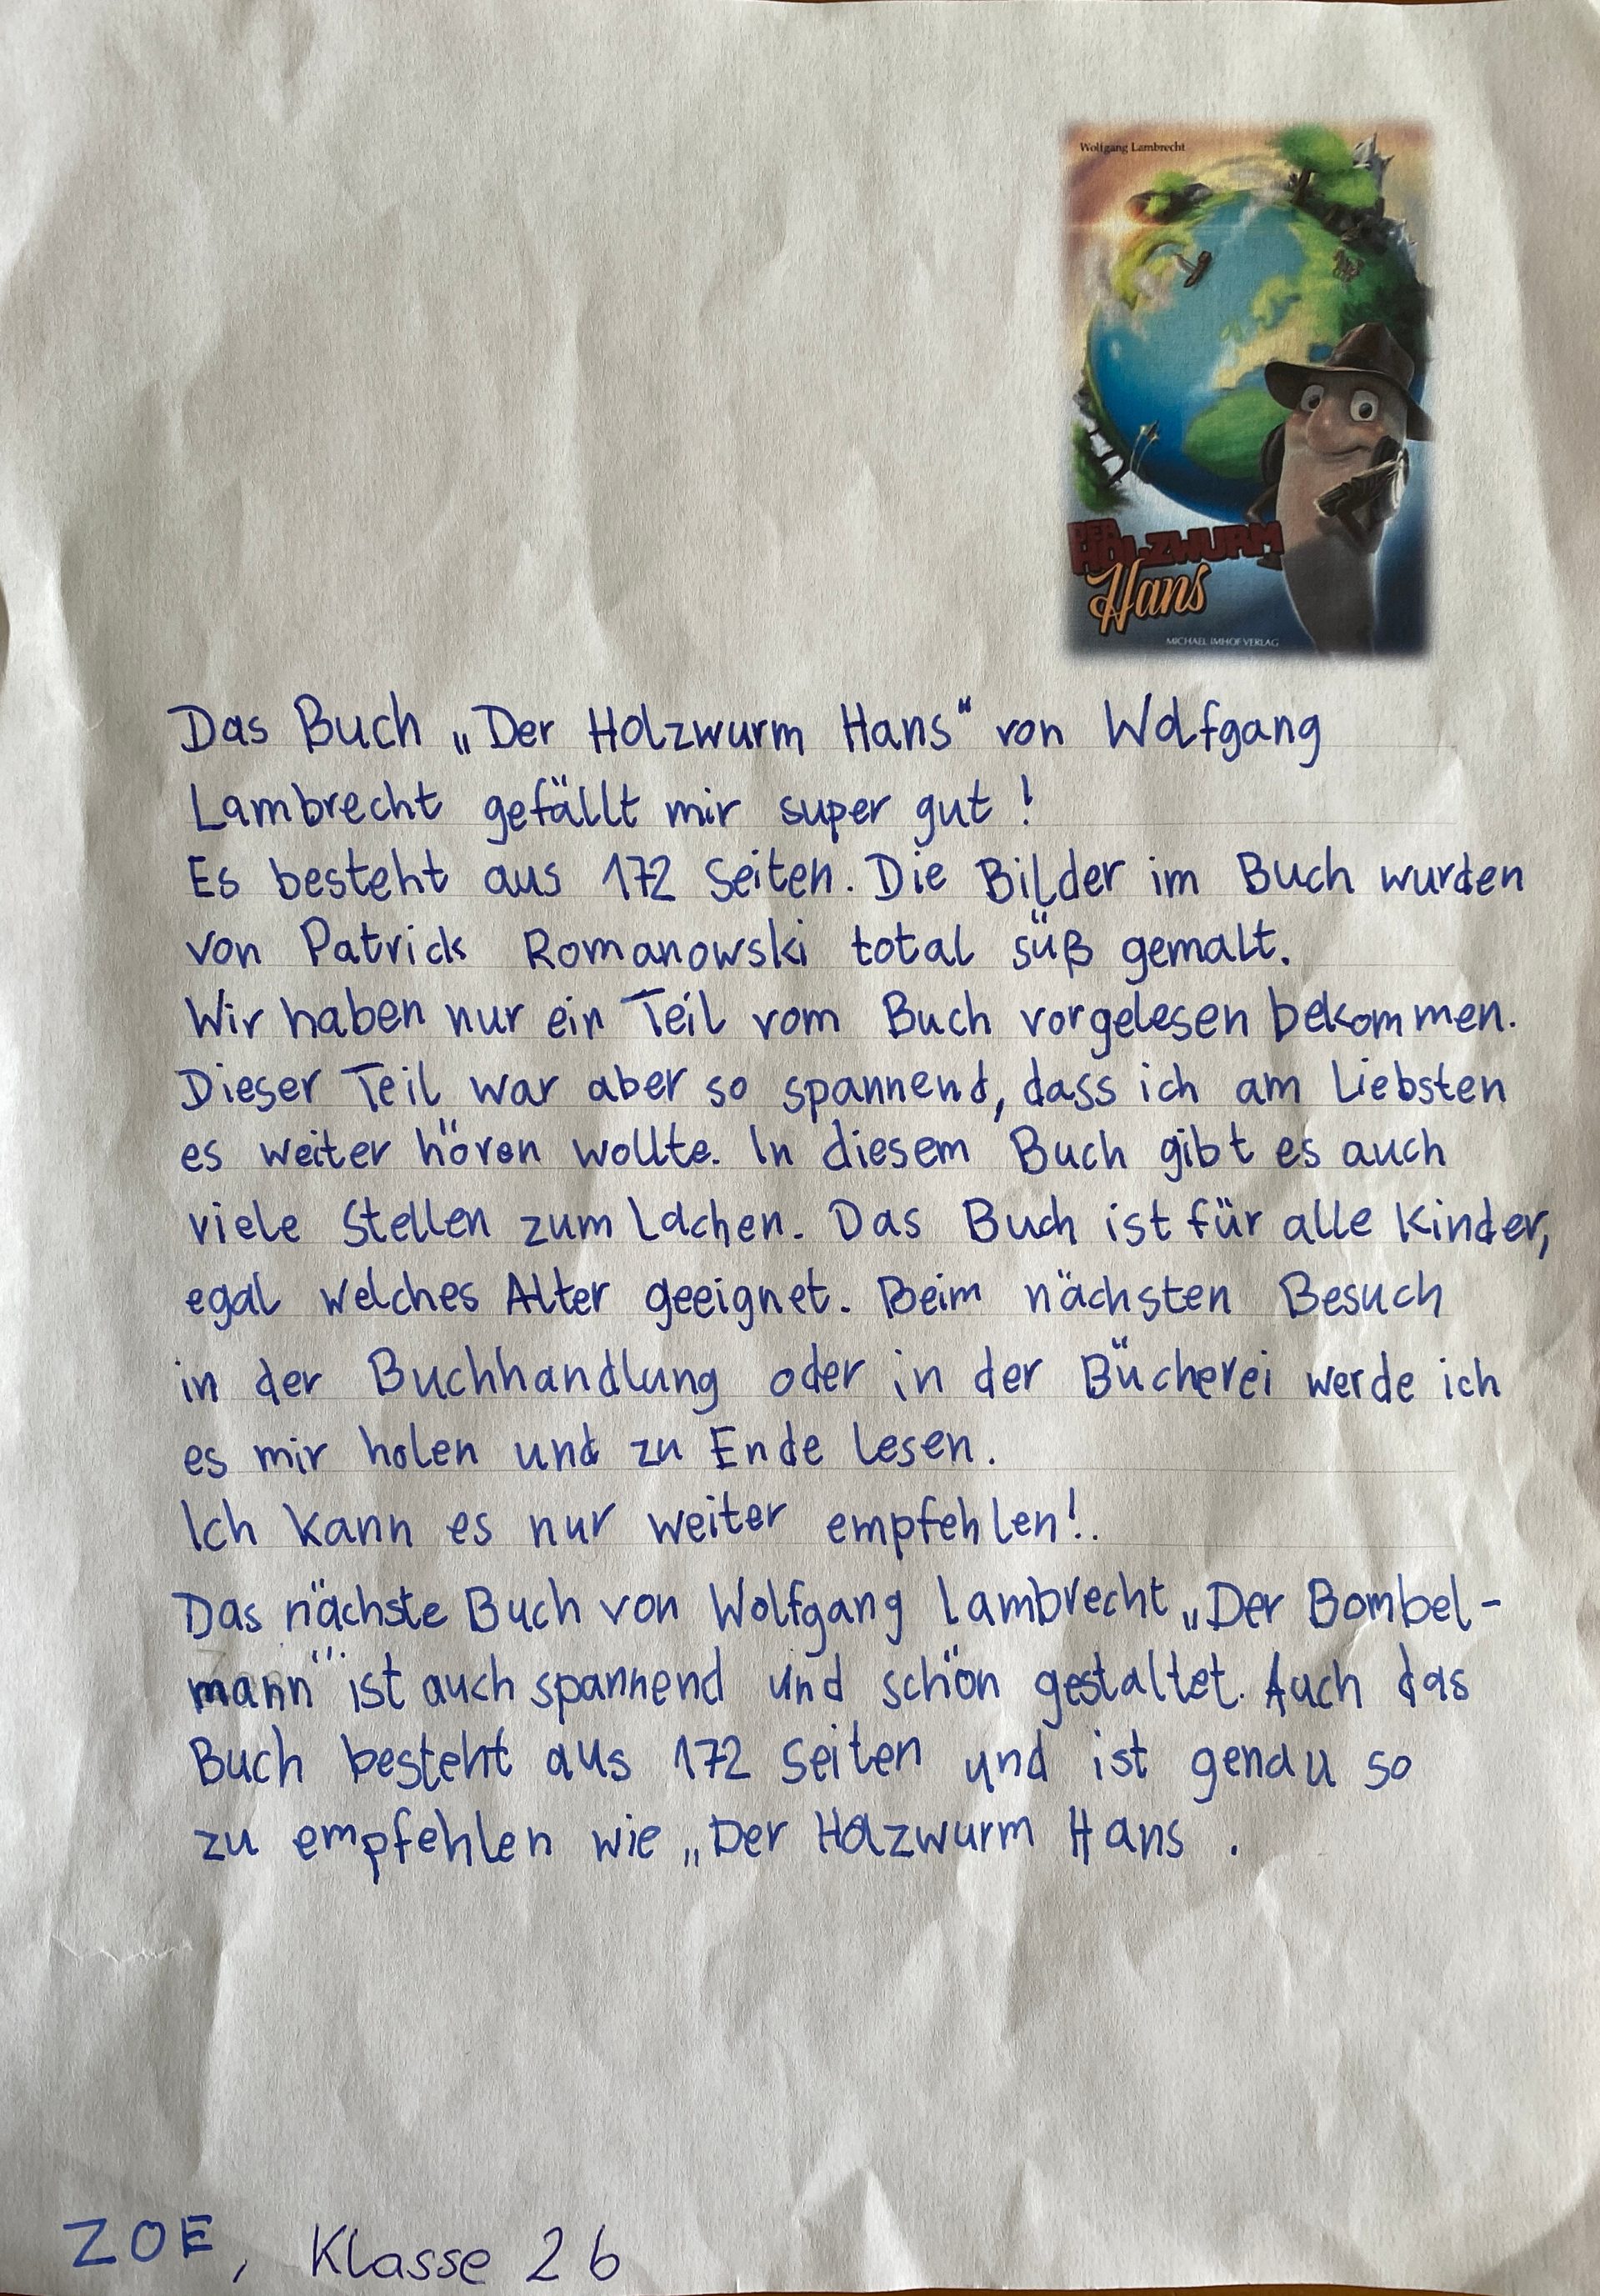 Wolfgang Lambrecht
DER
HOLZWURM
Hans
MICHAEL IMHOF VERLAG
Das Buch „Der Holzwurm Hans“ von Wolfgang
Lambrecht gefällt mir super gut!
Es besteht aus 172 Seiten. Die Bilder im Buch wurden
von Patrick Romanowski total süß gemalt.
Wir haben nur ein Teil vom Buch vorgelesen bekommen.
Dieser Teil war aber so spannend, dass ich am Liebsten
es weiter hören wollte. In diesem Buch gibt es auch
viele Stellen zum Lachen. Das Buch ist für alle Kinder,
egal welches Alter geeignet. Beim nächsten Besuch
in der Buchhandlung oder in der Bücherei werde ich
es mir holen und zu Ende lesen.
Ich kann es nur weiter empfehlen!.
Das nächste Buch von Wolfgang Lambrecht „Der Bombel-
mann“ ist auch spannend und schön gestaltet. Auch das
Buch besteht aus 172 Seiten und ist genau so
zu empfehlen wie „Der Holzwurm Hans .
ZOE, Klasse 2b